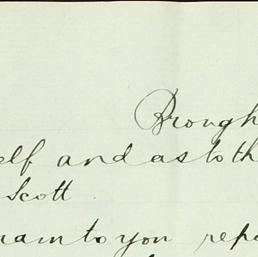 Brough
elf and as to th
Scott
ram to you repo